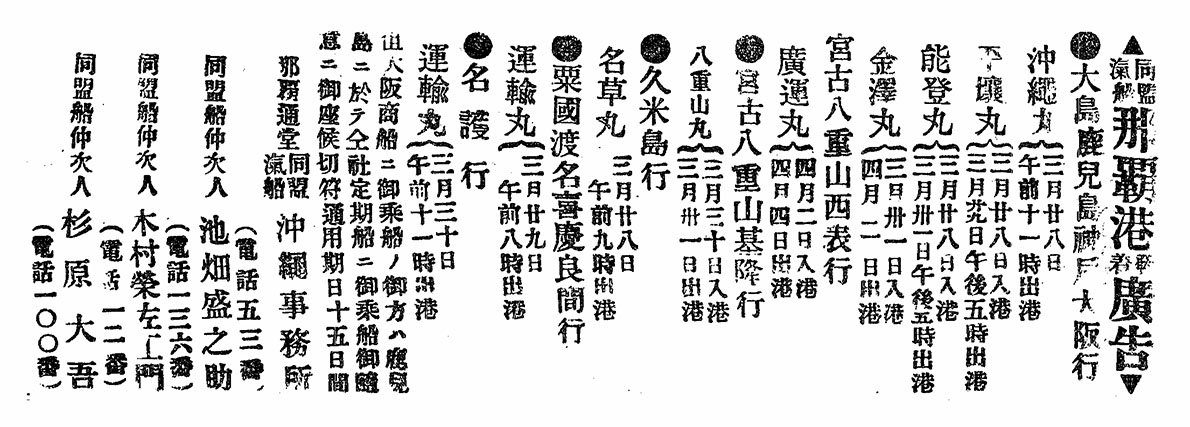 ▲同盟汽船那覇港發着廣告▼
●大島鹿兒島神戶大阪行
沖繩丸 三月廿八日午前十一時出港
平壤丸 三月廿八日入港 三月廿九日午後五時出港
能登丸 三月廿八日入港 三月卅一日午後五時出港
金澤丸 三月卅一日入港 四月二一日出港
宮古八重山西表行
廣運丸 四月二日入港 四月四日出港
●宮古八重山基隆行
八重山丸 三月三十日入港 三月卅一日出港
●久米島行
名草丸 三月廿八日午前九時出港
●粟國渡名喜慶良間行
運輸丸 三日廿九日午前八時出港
●名護行
運輸丸 三月三十日午前十一時出港
但大阪商船ニ御乘船ノ御方ハ鹿兒
島ニ於テ仝社定期船ニ御乘船御隨
意ニ御座候切符通用期日十五日間
那覇通堂 同盟汽船 沖繩事務所
(電話五三番)
同盟船仲次人 池畑盛之助
(電話一三六番)
同盟船仲次人 木村榮左工門
(電話一二番)
同盟船仲次人 杉原大吾
(電話一〇〇番)